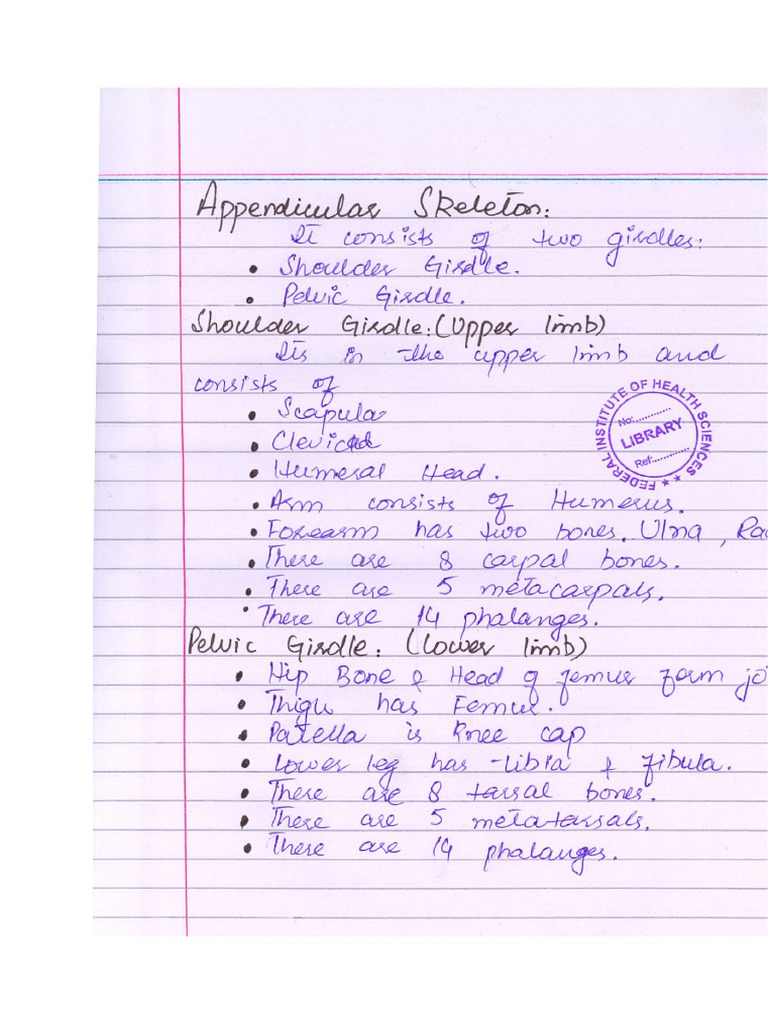 Appendicular Skeleton:
It consists of two girdles:
• Shoulder Girdle.
• Pelvic Girdle.
Shoulder Girdle: (Upper limb)
Its in the upper limb and
consists of
• Scapula
•
• Humeral Head.
• Arm consists of Humerus.
• Forearm has two bones. Ulna, Ra
• There are 8 carpal bones.
• There are 5 metacarpals.
• There are 14 phalanges.
FEDERAL INSTITUTE OF HEALTH SCIENCES
No:............
LIBRARY
Ref:............
Pelvic Girdle: (Lower limb)
• Hip Bone & Head of femur form jo
• Thigh has Femur.
• Patella is Knee cap
• Lower leg has tibia & fibula.
• There are 8 tarsal bones.
• There are 5 metatarsals.
• There are 14 phalanges.